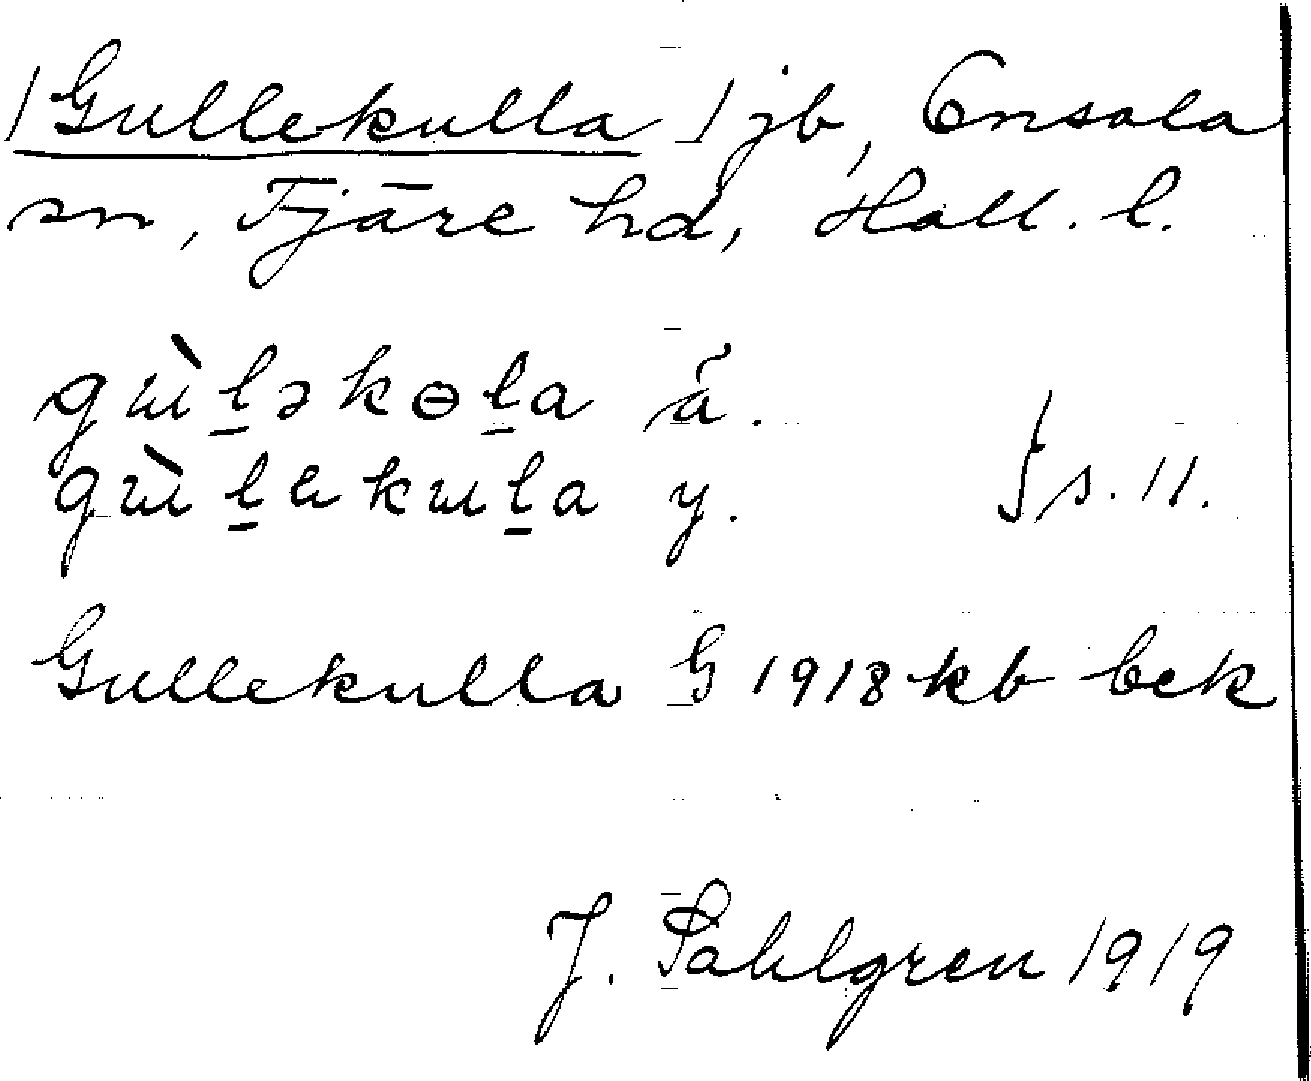 /Gullekulla/ jb, Onsala
sn, Fjäre hd, Hall. l.
gɯ̀l̠əkɵl̠a ä.
gɯ̀l̠ekɯl̠a y. } s. 11.
Gullekulla G 1918 kb bck
J. Sahlgren 1919